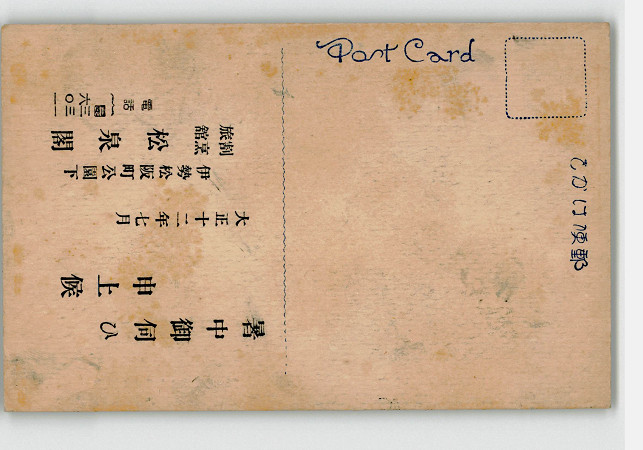 Post Card
きかは便郵
暑中御伺ひ
申上候
大正十二年七月
伊勢松阪町公園下
割烹
旅舘
松泉閣
電話